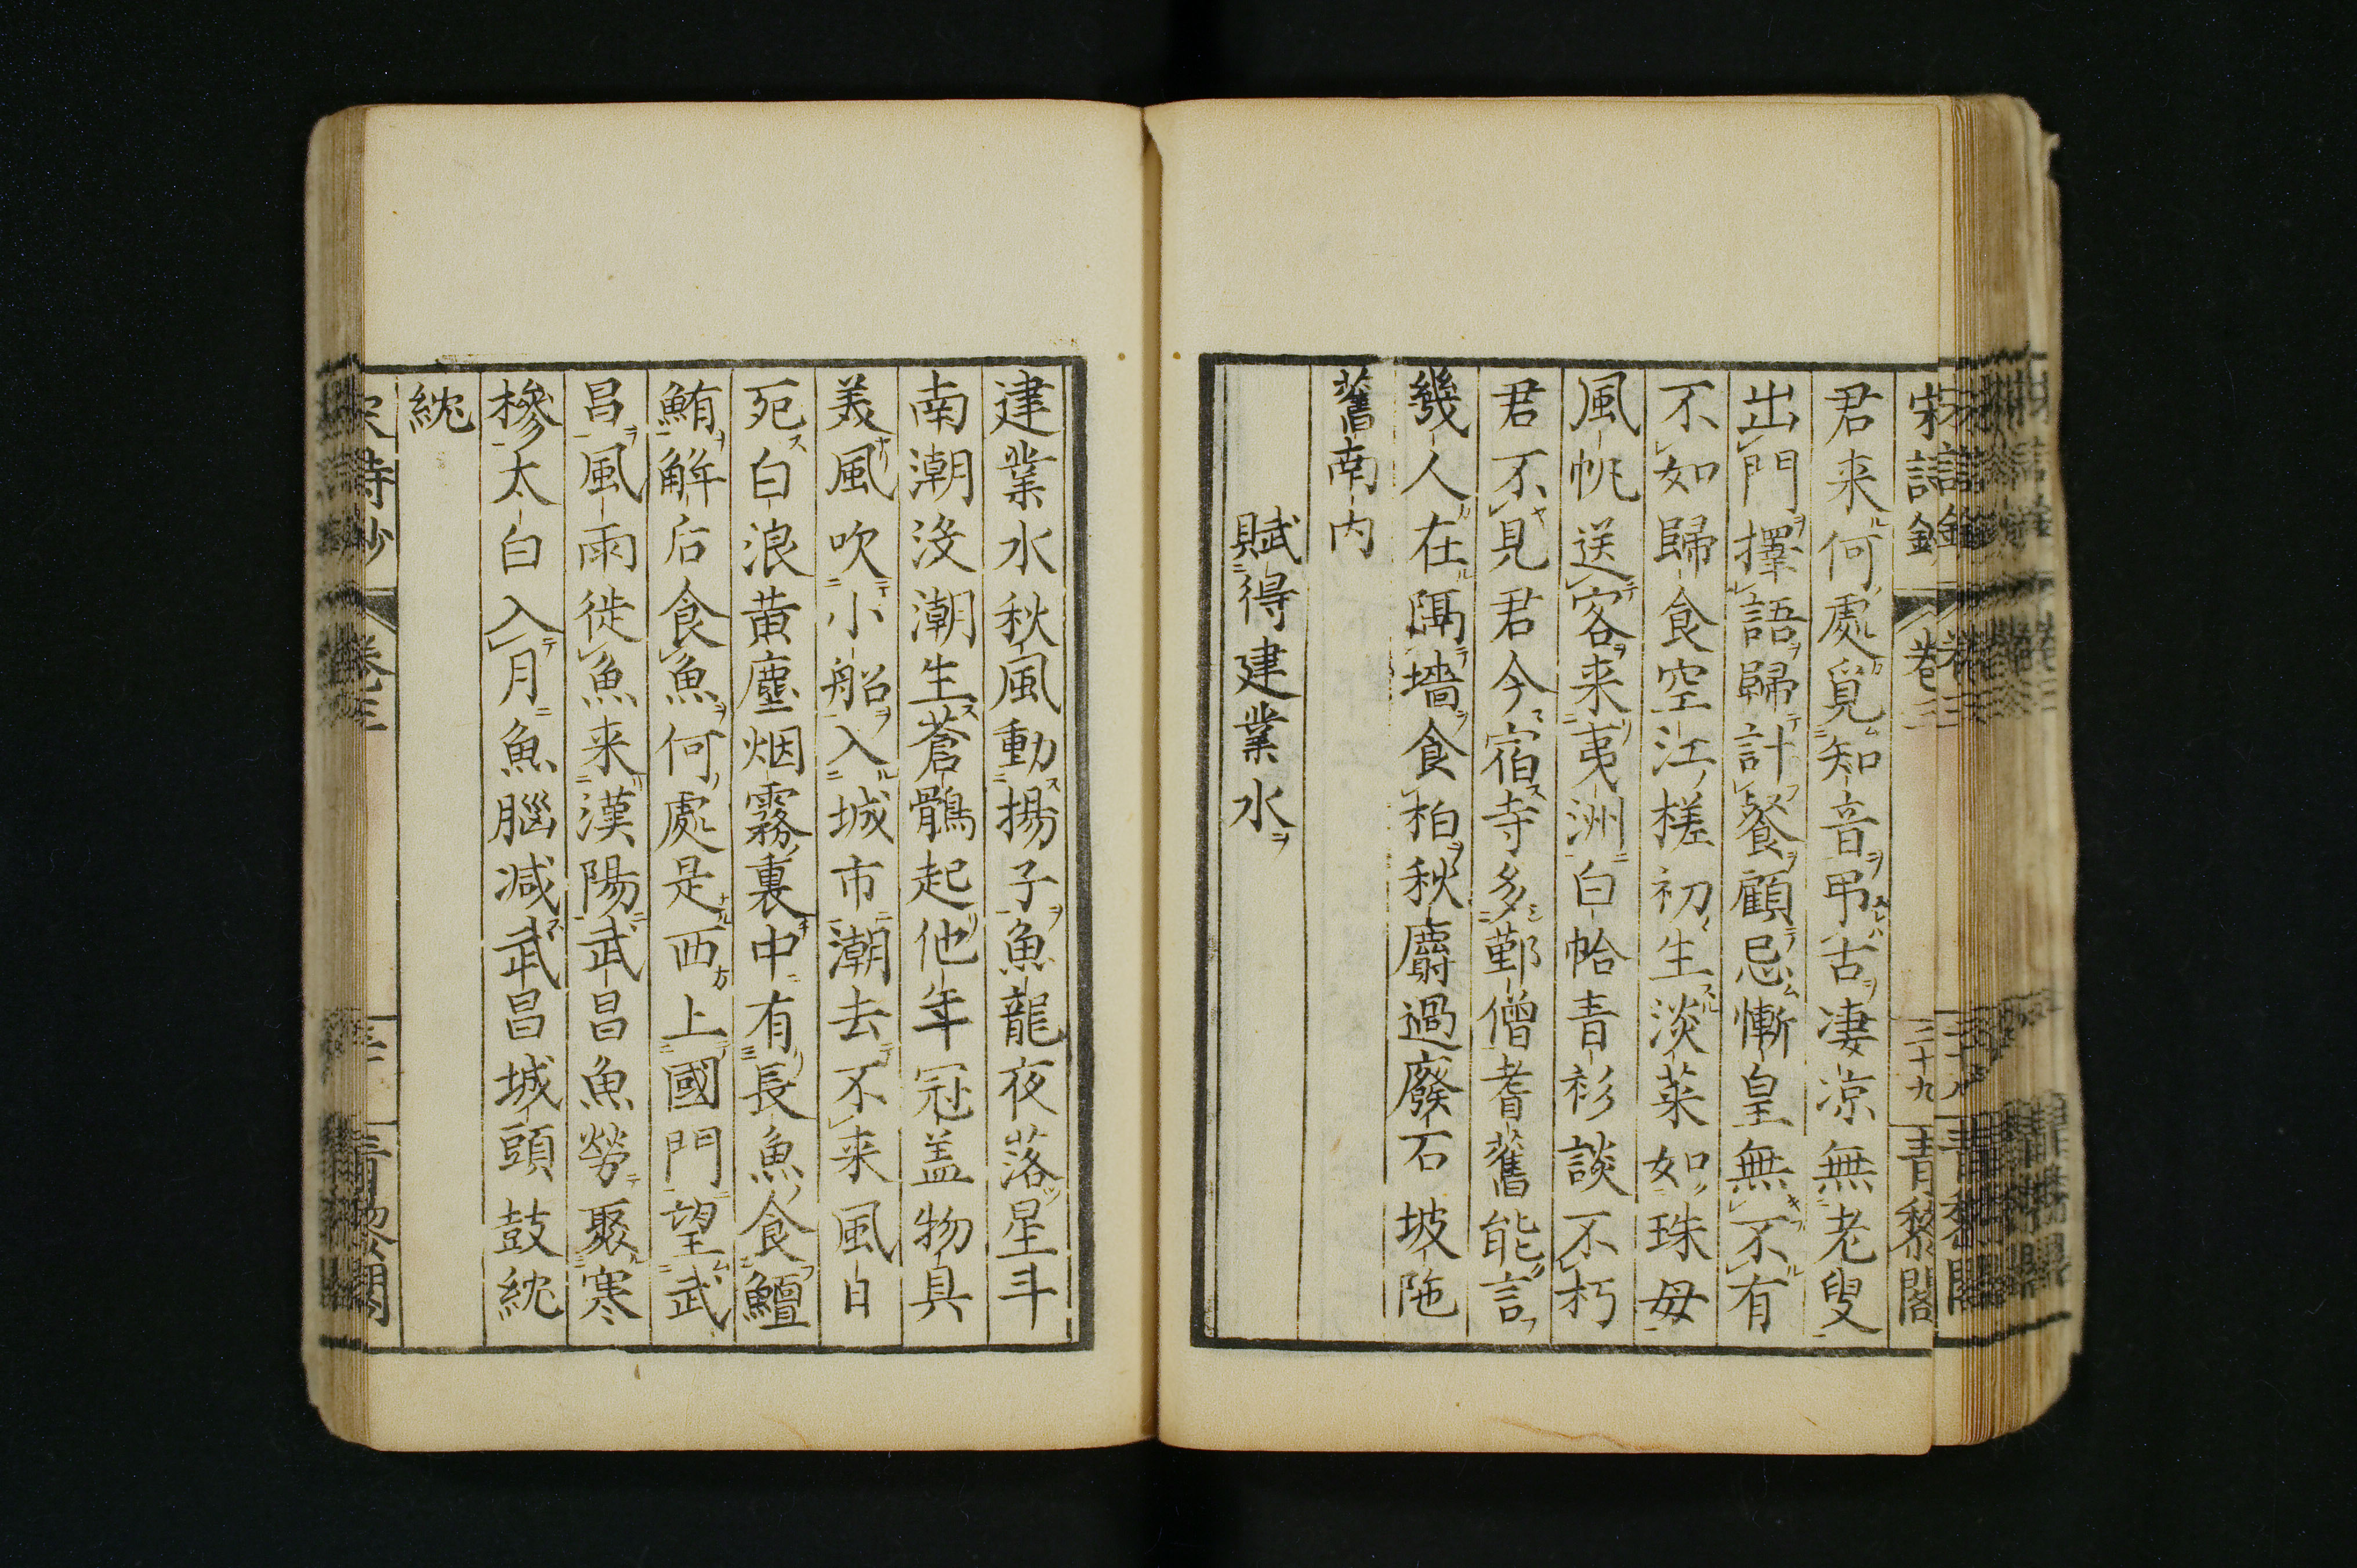 宋詩鈔 卷三 三十九 青藜閣
君来何處覓知音弔古凄凉無老叟
出門擇語歸計餐顧忌慚皇無不有
不如歸食空江槎初生淡菜如珠母
風帆送客来夷洲白帢青衫談不朽
君不見君今宿寺多鄞僧耆舊能言
幾人在隅墻食柏秋麝過廢石坡陁
舊南内
賦得建業水
建業水秋風動揚子魚龍夜落星斗
南潮沒潮生蒼鶻起他年冠盖物具
美風吹小船入城市潮去不来風日
死白浪黄塵烟霧裏中有長魚食鱣
鮪觧后食魚何處是西上國門望武
昌風雨徙魚来漢陽武昌魚勞聚寒
槮太白入月魚腦减武昌城頭鼓紞
紞